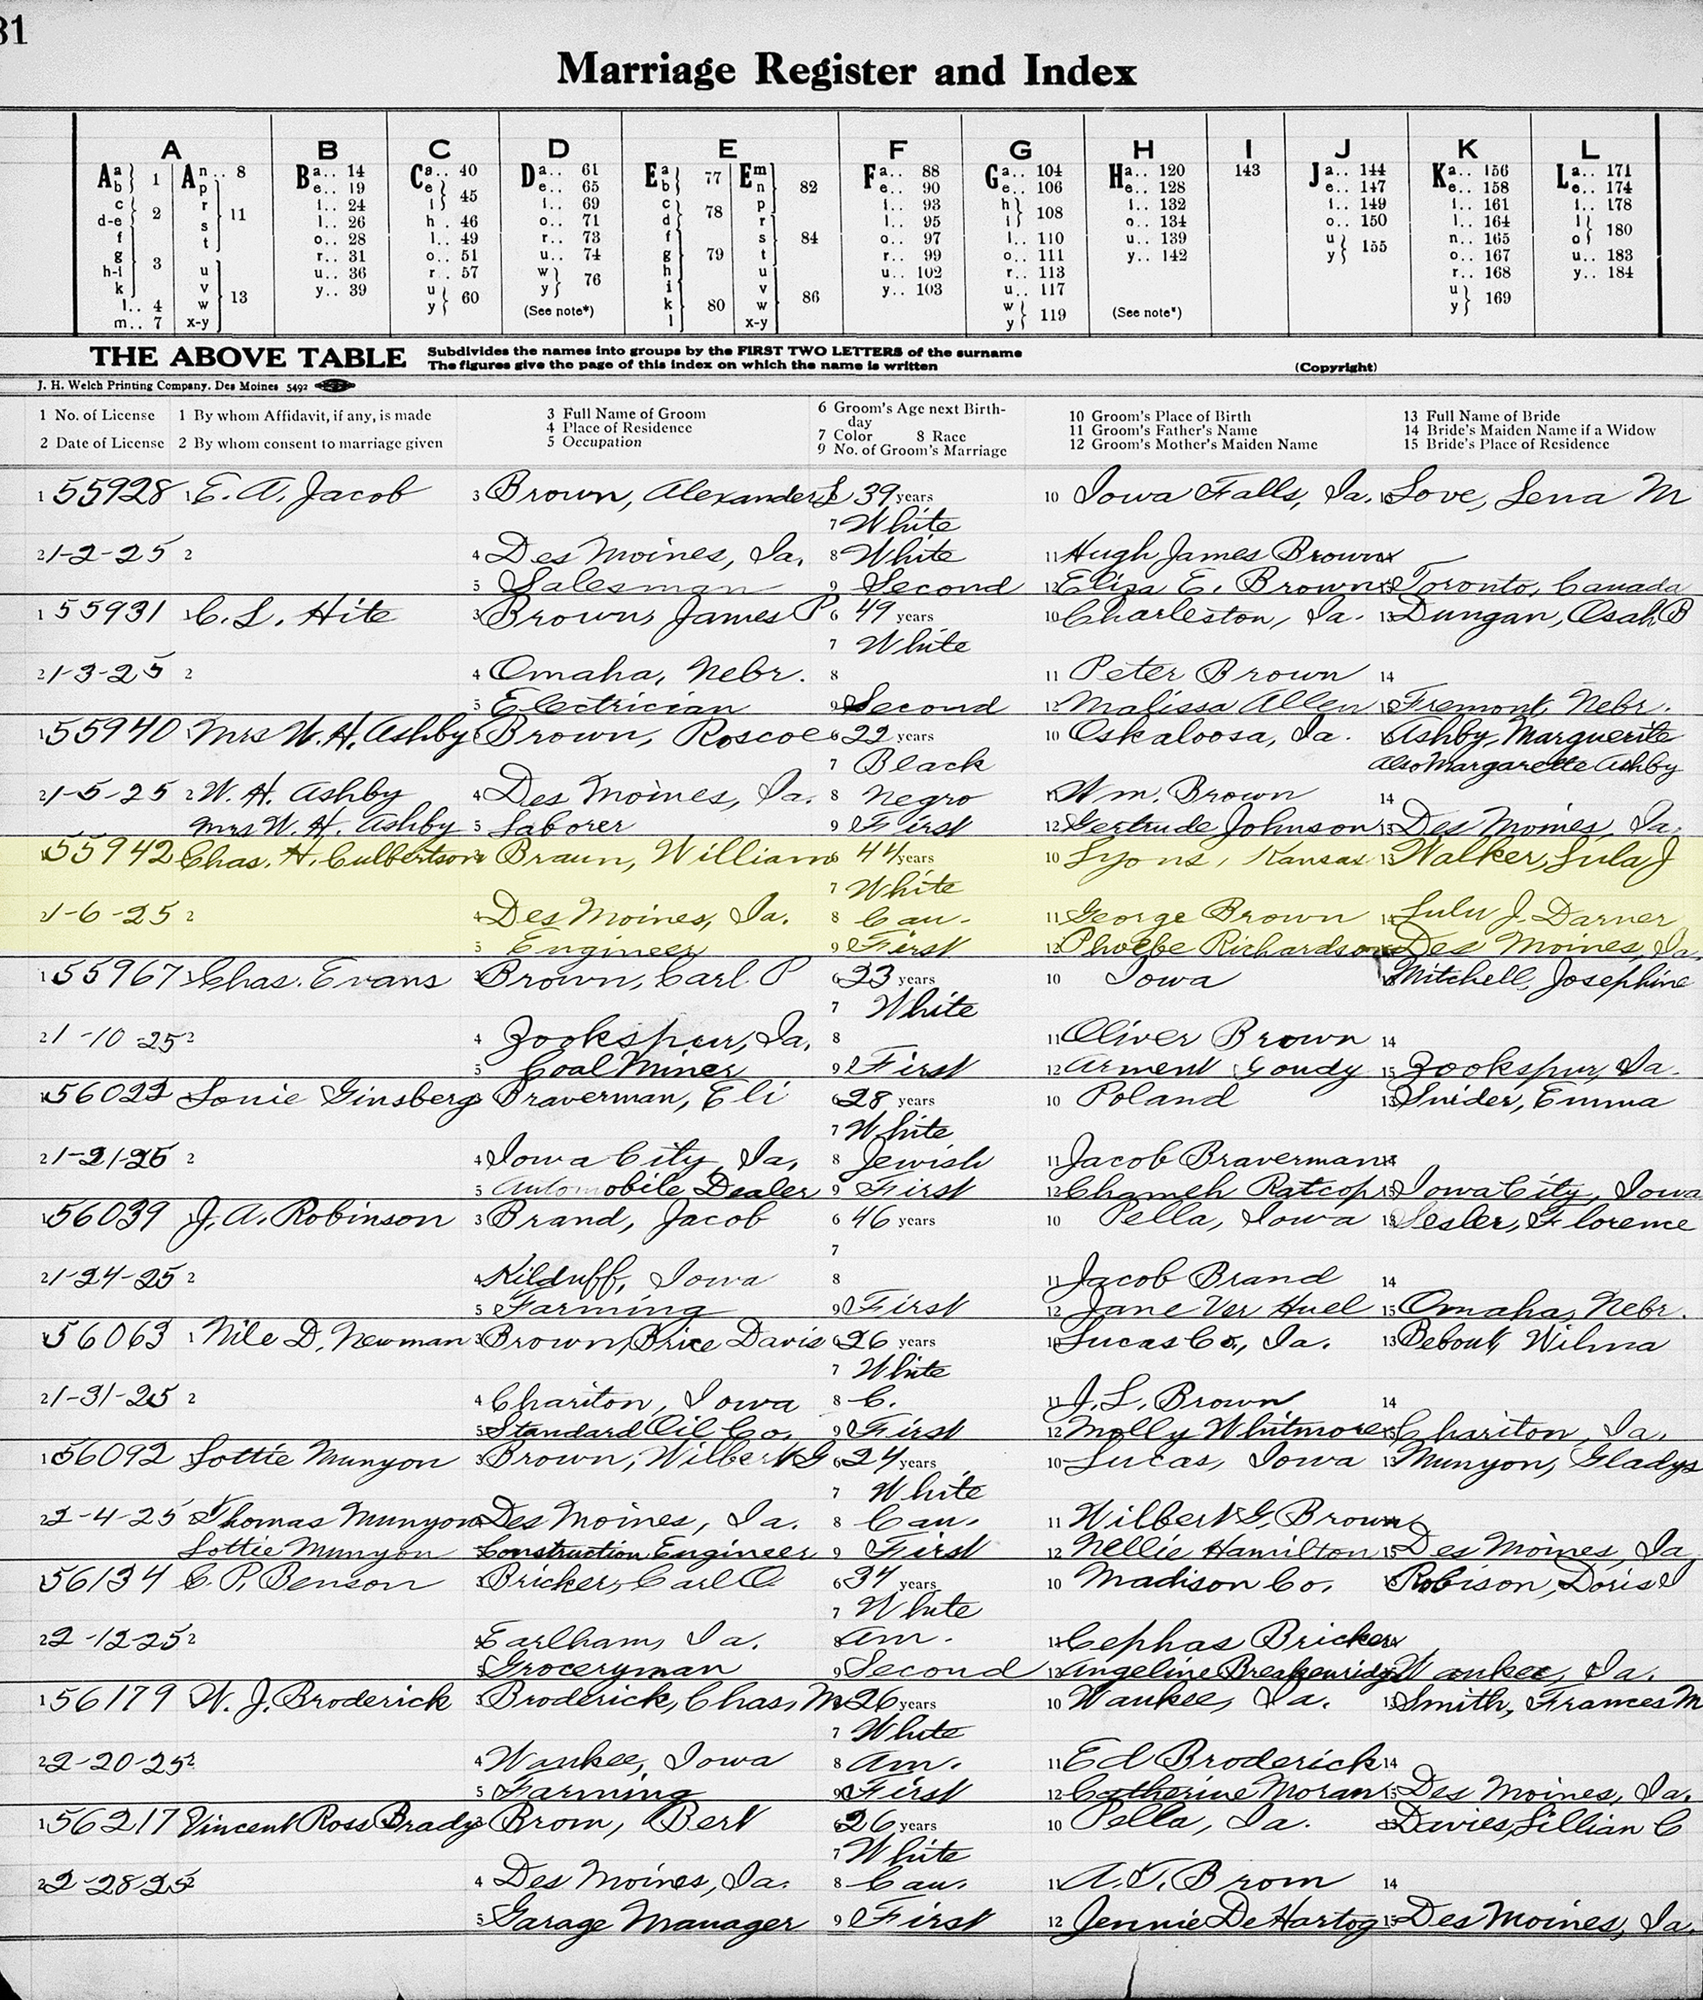 31
Marriage Register and Index
A B C D E F G H I J K L
Aa b } 1 An.. 8 Ba.. 14 Ca.. 40 Da.. 61 Ea b } 77 Em n p } 82 Fa.. 88 Ga.. 104 Ha.. 120 143 Ja.. 144 Ka.. 156 La.. 171
c d-e f } 2 p r s t } 11 e.. 19 e i } 45 e.. 65 c d } 78 r s t } 84 e.. 90 e.. 106 e.. 128 e.. 147 e.. 158 e.. 174
g h-i k } 3 u v w x-y } 13 i.. 24 h. 46 i.. 69 f g h } 79 u v w x-y } 86 i.. 93 h i } 108 i.. 132 i.. 149 i.. 161 i.. 178
l.. 4 l.. 26 l.. 49 o.. 71 i k l } 80 l.. 95 l.. 110 o.. 134 o.. 150 l.. 164 l o } 180
m.. 7 o.. 28 o.. 51 r.. 73 o.. 97 o.. 111 u.. 139 u y } 155 n.. 165 u.. 183
r.. 31 r.. 57 u.. 74 r.. 99 r.. 113 y.. 142 o.. 167 y.. 184
u.. 36 u y } 60 w y } 76 u.. 102 u.. 117 r.. 168
y.. 39 (See note*) y.. 103 w y } 119 (See note*) u y } 169
THE ABOVE TABLE Subdivides the names into groups by the FIRST TWO LETTERS of the surname
The figures give the page of this index on which the name is written (Copyright)
J. H. Welch Printing Company. Des Moines 5492
1 No. of License 1 By whom Affidavit, if any, is made 3 Full Name of Groom 6 Groom's Age next Birth-day 10 Groom's Place of Birth 13 Full Name of Bride
4 Place of Residence 7 Color 8 Race 11 Groom's Father's Name 14 Bride's Maiden Name if a Widow
2 Date of License 2 By whom consent to marriage given 5 Occupation 9 No. of Groom's Marriage 12 Groom's Mother's Maiden Name 15 Bride's Place of Residence
1 55928 1 E. A. Jacob 3 Brown, Alexander S 39 years 10 Iowa Falls, Ia. 13 Love, Lena M
7 White
2 1-2-25 2 4 Des Moines, Ia. 8 White 11 Hugh James Brown 14 —
5 Salesman 9 Second 12 Eliza E. Brown 15 Toronto, Canada
1 55931 1 C. L. Hite 3 Brown, James P 6 49 years 10 Charleston, Ia. 13 Dungan, Osah B
7 White
2 1-3-25 2 4 Omaha, Nebr. 8 11 Peter Brown 14
5 Electrician 9 Second 12 Malissa Allen 15 Fremont, Nebr.
1 55940 1 Mrs W. H. Ashby 3 Brown, Roscoe 6 22 years 10 Oskaloosa, Ia. 13 Ashby, Marguerite
7 Black also Margarette Ashby
2 1-5-25 2 W. H. Ashby 4 Des Moines, Ia. 8 Negro 11 Wm. Brown 14
Mrs W. H. Ashby 5 Laborer 9 First 12 Gertrude Johnson 15 Des Moines, Ia.
1 55942 Chas. H. Culbertson 3 Braun, William 6 44 years 10 Lyons, Kansas 13 Walker, Lula J
7 White
2 1-6-25 2 4 Des Moines, Ia. 8 Cau. 11 George Brown 14 Lulu J. Darner
5 Engineer 9 First 12 Phoebe Richardson 15 Des Moines, Ia.
1 55967 1 Chas. Evans 3 Brown, Carl P 6 23 years 10 Iowa 13 Mitchell, Josephine
7 White
2 1-10-25 2 4 Zookspur, Ia. 8 11 Oliver Brown 14
5 Coal Miner 9 First 12 Arment Goudy 15 Zookspur, Ia.
1 56023 Lonie Ginsberg 3 Braverman, Eli 6 28 years 10 Poland 13 Snider, Emma
7 White
2 1-21-25 2 4 Iowa City, Ia. 8 Jewish 11 Jacob Braverman 14
5 Automobile Dealer 9 First 12 Chameh Ratcop 15 Iowa City, Iowa
1 56039 1 J. A. Robinson 3 Brand, Jacob 6 46 years 10 Pella, Iowa 13 Lesler, Florence
7
2 1-24-25 2 4 Kilduff, Iowa 8 11 Jacob Brand 14
5 Farming 9 First 12 Jane Ver Huel 15 Omaha, Nebr.
1 56063 1 Nile D. Newman 3 Brown, Brice Davis 6 26 years 10 Lucas Co., Ia. 13 Bebout, Wilma
7 White
2 1-31-25 2 4 Chariton, Iowa 8 C. 11 J. L. Brown 14
5 Standard Oil Co. 9 First 12 Molly Whitmore 15 Chariton, Ia.
1 56092 Lottie Munyon 3 Brown, Wilbert G 6 24 years 10 Lucas, Iowa 13 Munyon, Gladys
7 White
2 2-4-25 2 Thomas Munyon 4 Des Moines, Ia. 8 Cau. 11 Wilbert G. Brown 14
Lottie Munyon 5 Construction Engineer 9 First 12 Nellie Hamilton 15 Des Moines, Ia.
1 56134 C. P. Benson 3 Bricker, Carl O. 6 34 years 10 Madison Co. 13 Robison, Doris
7 White
2 2-12-25 2 4 Earlham, Ia. 8 Am. 11 Cephas Bricker 14
5 Groceryman 9 Second 12 Angeline Breakenridge 15 Waukee, Ia.
1 56179 W. J. Broderick 3 Broderick, Chas. M 6 26 years 10 Waukee, Ia. 13 Smith, Frances M
7 White
2 2-20-25 2 4 Waukee, Iowa 8 Am. 11 Ed Broderick 14
5 Farming 9 First 12 Catherine Moran 15 Des Moines, Ia.
1 56217 Vincent Ross Brady 3 Brom, Bert 6 26 years 10 Pella, Ia. 13 Davies, Lillian C
7 White
2 2-28-25 2 4 Des Moines, Ia. 8 Cau. 11 A. T. Brom 14
5 Garage Manager 9 First 12 Jennie DeHartog 15 Des Moines, Ia.